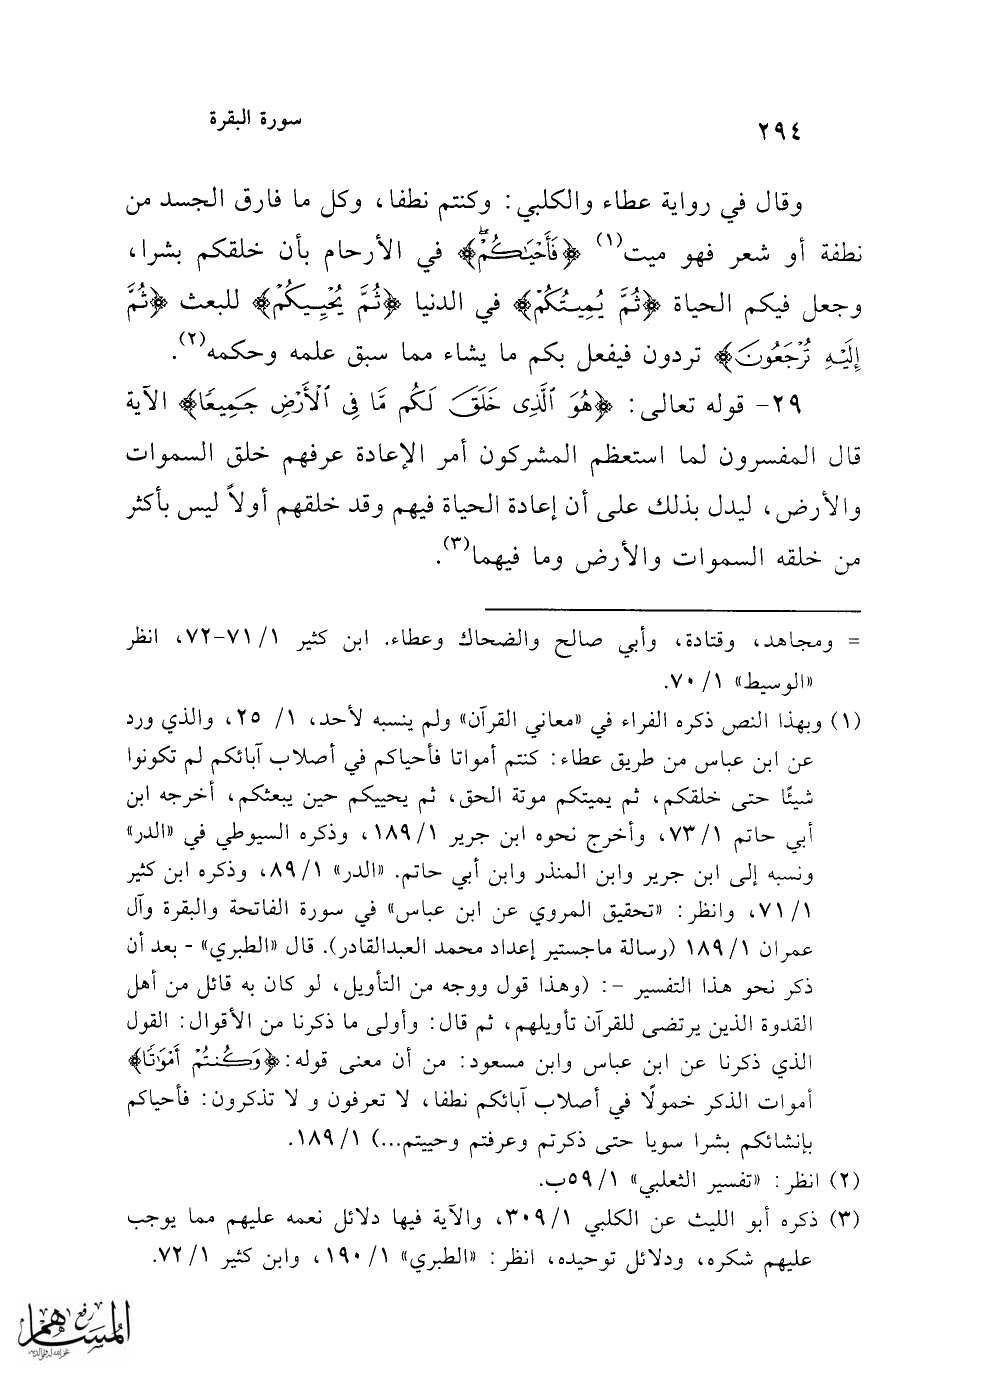 ٢٩٤
سورة البقرة
وقال في رواية عطاء والكلبي: وكنتم نطفا، وكل ما فارق الجسد من
نطفة أو شعر فهو ميت(١) ﴿فَأَحْيَـٰكُمْۖ﴾ في الأرحام بأن خلقكم بشرا،
وجعل فيكم الحياة ﴿ثُمَّ يُمِيتُكُمْ﴾ في الدنيا ﴿ثُمَّ يُحْيِيكُمْ﴾ للبعث ﴿ثُمَّ
إِلَيْهِ تُرْجَعُونَ﴾ تردون فيفعل بكم ما يشاء مما سبق علمه وحكمه(٢).
٢٩- قوله تعالى: ﴿هُوَ ٱلَّذِى خَلَقَ لَكُم مَّا فِى ٱلْأَرْضِ جَمِيعًا﴾ الآية
قال المفسرون لما استعظم المشركون أمر الإعادة عرفهم خلق السموات
والأرض، ليدل بذلك على أن إعادة الحياة فيهم وقد خلقهم أولاً ليس بأكثر
من خلقه السموات والأرض وما فيهما(٣).
= ومجاهد، وقتادة، وأبي صالح والضحاك وعطاء. ابن كثير ١/ ٧١-٧٢، انظر
«الوسيط» ١/ ٧٠.
(١) وبهذا النص ذكره الفراء في «معاني القرآن» ولم ينسبه لأحد، ١/ ٢٥، والذي ورد
عن ابن عباس من طريق عطاء: كنتم أمواتا فأحياكم في أصلاب آبائكم لم تكونوا
شيئًا حتى خلقكم، ثم يميتكم موتة الحق، ثم يحييكم حين يبعثكم، أخرجه ابن
أبي حاتم ١/ ٧٣، وأخرج نحوه ابن جرير ١/ ١٨٩، وذكره السيوطي في «الدر»
ونسبه إلى ابن جرير وابن المنذر وابن أبي حاتم. «الدر» ١/ ٨٩، وذكره ابن كثير
١/ ٧١، وانظر: «تحقيق المروي عن ابن عباس» في سورة الفاتحة والبقرة وآل
عمران ١/ ١٨٩ (رسالة ماجستير إعداد محمد العبدالقادر). قال «الطبري» - بعد أن
ذكر نحو هذا التفسير -: (وهذا قول ووجه من التأويل، لو كان به قائل من أهل
القدوة الذين يرتضى للقرآن تأويلهم، ثم قال: وأولى ما ذكرنا من الأقوال: القول
الذي ذكرنا عن ابن عباس وابن مسعود: من أن معنى قوله: ﴿وَكُنتُمْ أَمْوَٰتًا﴾
أموات الذكر خمولًا في أصلاب آبائكم نطفا، لا تعرفون و لا تذكرون: فأحياكم
بإنشائكم بشرا سويا حتى ذكرتم وعرفتم وحييتم...) ١/ ١٨٩.
(٢) انظر: «تفسير الثعلبي» ١/ ٥٩ب.
(٣) ذكره أبو الليث عن الكلبي ١/ ٣٠٩، والآية فيها دلائل نعمه عليهم مما يوجب
عليهم شكره، ودلائل توحيده، انظر: «الطبري» ١/ ١٩٠، وابن كثير ١/ ٧٢.